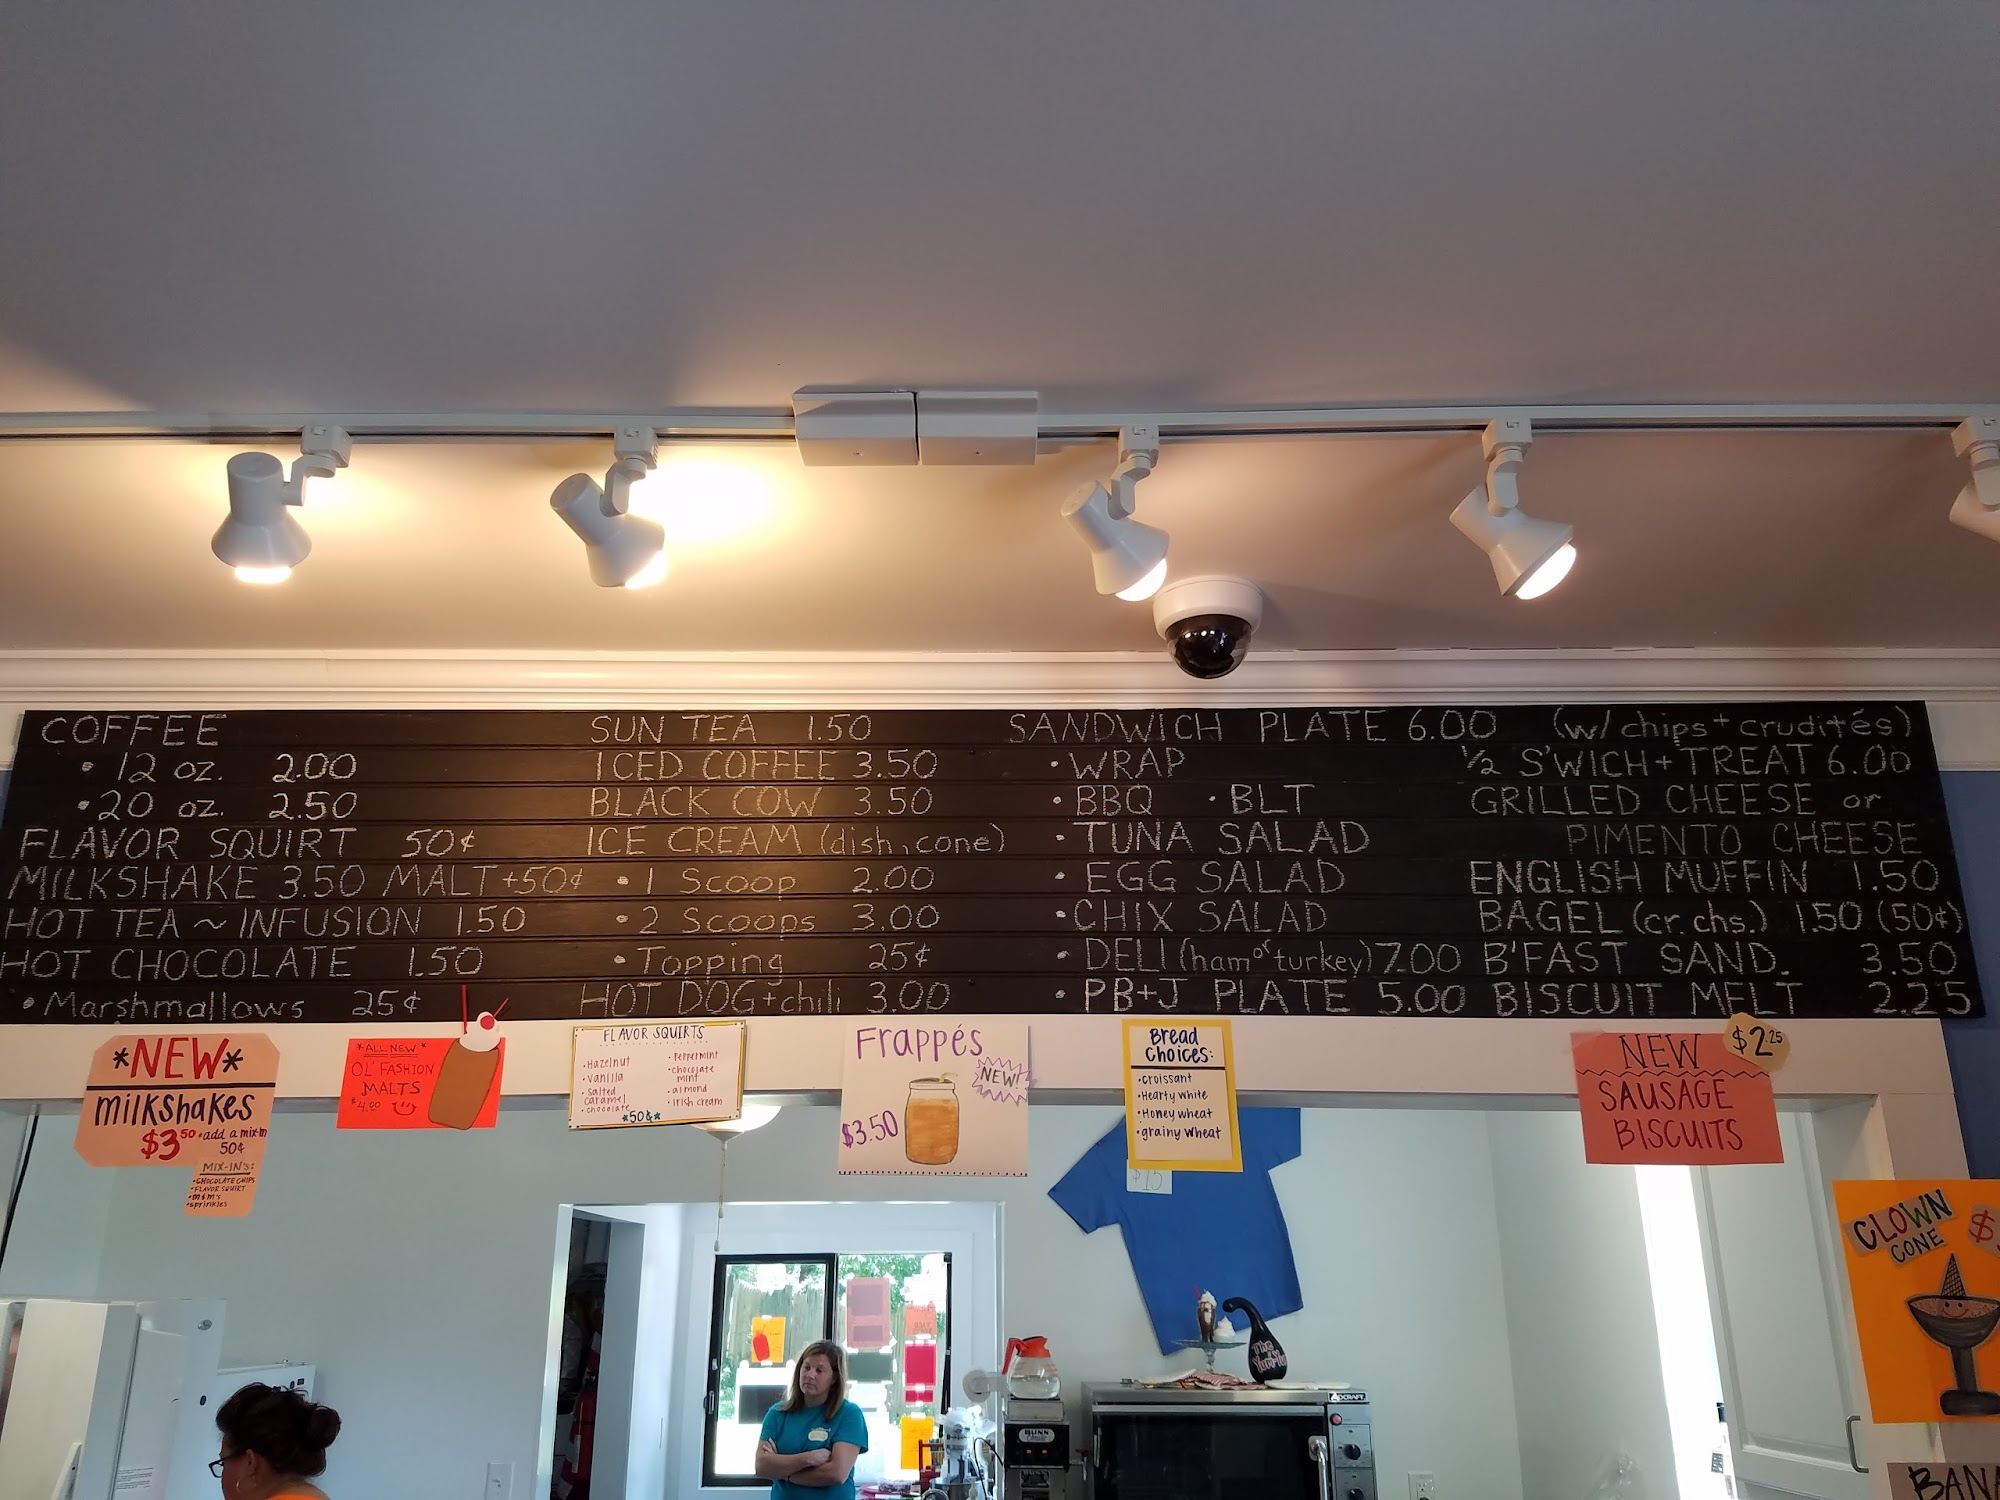 COFFEE
• 12 oz. 2.00
• 20 oz. 2.50
FLAVOR SQUIRT 50¢
MILKSHAKE 3.50 MALT+50¢
HOT TEA ~ INFUSION 1.50
HOT CHOCOLATE 1.50
• Marshmallows 25¢
SUN TEA 1.50
ICED COFFEE 3.50
BLACK COW 3.50
ICE CREAM (dish, cone)
• 1 Scoop 2.00
• 2 Scoops 3.00
• Topping 25¢
HOT DOG + chili 3.00
SANDWICH PLATE 6.00 (w/ chips + crudités)
• WRAP
• BBQ • BLT
• TUNA SALAD
• EGG SALAD
• CHIX SALAD
• DELI (ham or turkey) 7.00
• PB+J PLATE 5.00
½ S'WICH + TREAT 6.00
GRILLED CHEESE or
PIMENTO CHEESE
ENGLISH MUFFIN 1.50
BAGEL (cr. chs.) 1.50 (50¢)
B'FAST SAND. 3.50
BISCUIT MELT 2.25
*NEW*
milkshakes
$3.50 • add a mix-in
50¢
MIX-IN'S:
• CHOCOLATE CHIPS
• FLAVOR SQUIRT
• m&m's
• sprinkles
*ALL NEW*
OL' FASHION
MALTS
$4.00
FLAVOR SQUIRTS
• Hazelnut
• vanilla
• salted
caramel
• chocolate
• Peppermint
• chocolate
mint
• almond
• irish cream
*50¢*
Frappés
NEW!
$3.50
Bread
Choices:
• croissant
• Hearty white
• Honey wheat
• grainy wheat
$15
NEW
SAUSAGE
BISCUITS
$2.25
CLOWN
CONE
$
BANA
The
BUNN
ADCRAFT